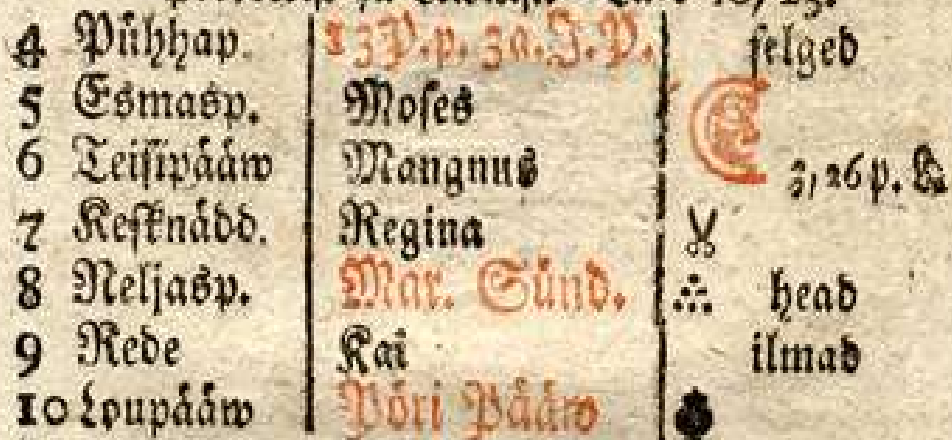 4 Pühhap. 13 P. p. 3a. J. P. selged
5 Esmasp. Moses
6 Teisipääw Mangnus 3, 26 p. E
7 Kesknädd. Regina
8 Neljasp. Mar. Sünd. head
9 Rede Kai ilmad
10 Loupääw Pöri Pääw